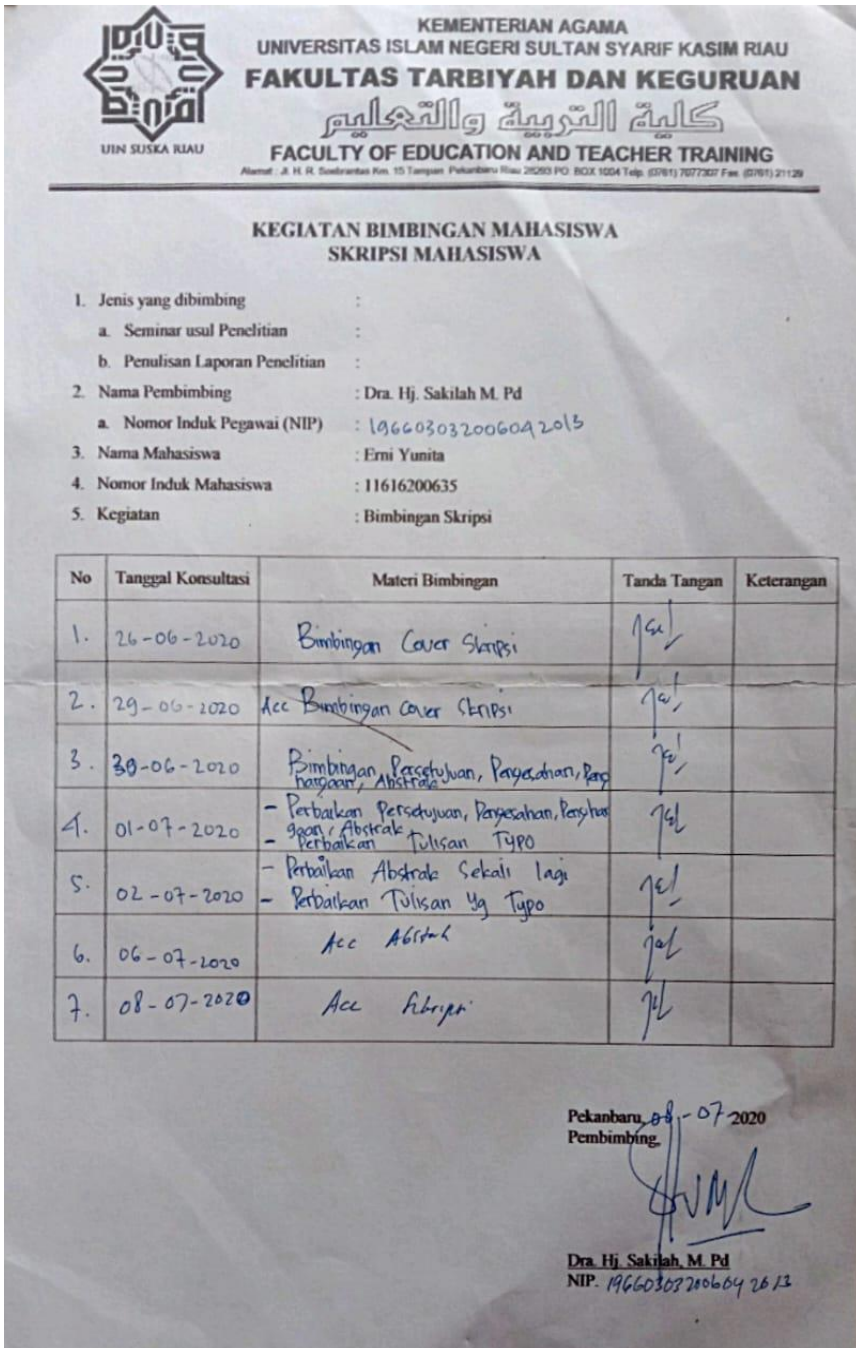 UIN SUSKA RIAU
KEMENTERIAN AGAMA
UNIVERSITAS ISLAM NEGERI SULTAN SYARIF KASIM RIAU
FAKULTAS TARBIYAH DAN KEGURUAN
كلية التربية والتعليم
FACULTY OF EDUCATION AND TEACHER TRAINING
Alamat : Jl. H. R. Soebrantas Km. 15 Tampan Pekanbaru Riau 28293 PO. BOX 1004 Telp. (0761) 7077307 Fax. (0761) 21129
KEGIATAN BIMBINGAN MAHASISWA
SKRIPSI MAHASISWA
1. Jenis yang dibimbing :
a. Seminar usul Penelitian :
b. Penulisan Laporan Penelitian :
2. Nama Pembimbing : Dra. Hj. Sakilah M. Pd
a. Nomor Induk Pegawai (NIP) : 196603032006042013
3. Nama Mahasiswa : Erni Yunita
4. Nomor Induk Mahasiswa : 11616200635
5. Kegiatan : Bimbingan Skripsi
No Tanggal Konsultasi Materi Bimbingan Tanda Tangan Keterangan
1. 26-06-2020 Bimbingan Cover Skripsi
2. 29-06-2020 Acc Bimbingan Cover Skripsi
3. 30-06-2020 Bimbingan, Persetujuan, Pengesahan, Peng
hargaan, Abstrak
4. 01-07-2020 - Perbaikan Persetujuan, Pengesahan, Penghar
gaan, Abstrak
- Perbaikan Tulisan Typo
5. 02-07-2020 - Perbaikan Abstrak Sekali lagi
- Perbaikan Tulisan Yg Typo
6. 06-07-2020 Acc Abstrak
7. 08-07-2020 Acc Skripsi
Pekanbaru, 08-07-2020
Pembimbing,
Dra. Hj. Sakilah, M. Pd
NIP. 196603032006042013